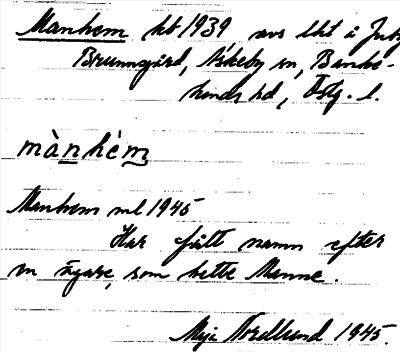 Manhem kt 1939 avs lht i Jutg
Brunnsgård, Askeby sn, Banke-
kinds hd, Östg. l.
mànhèm
Manhem ml 1945
Har fått namn efter
en ägare, som hette Manne.
Maja Nordlund 1945.